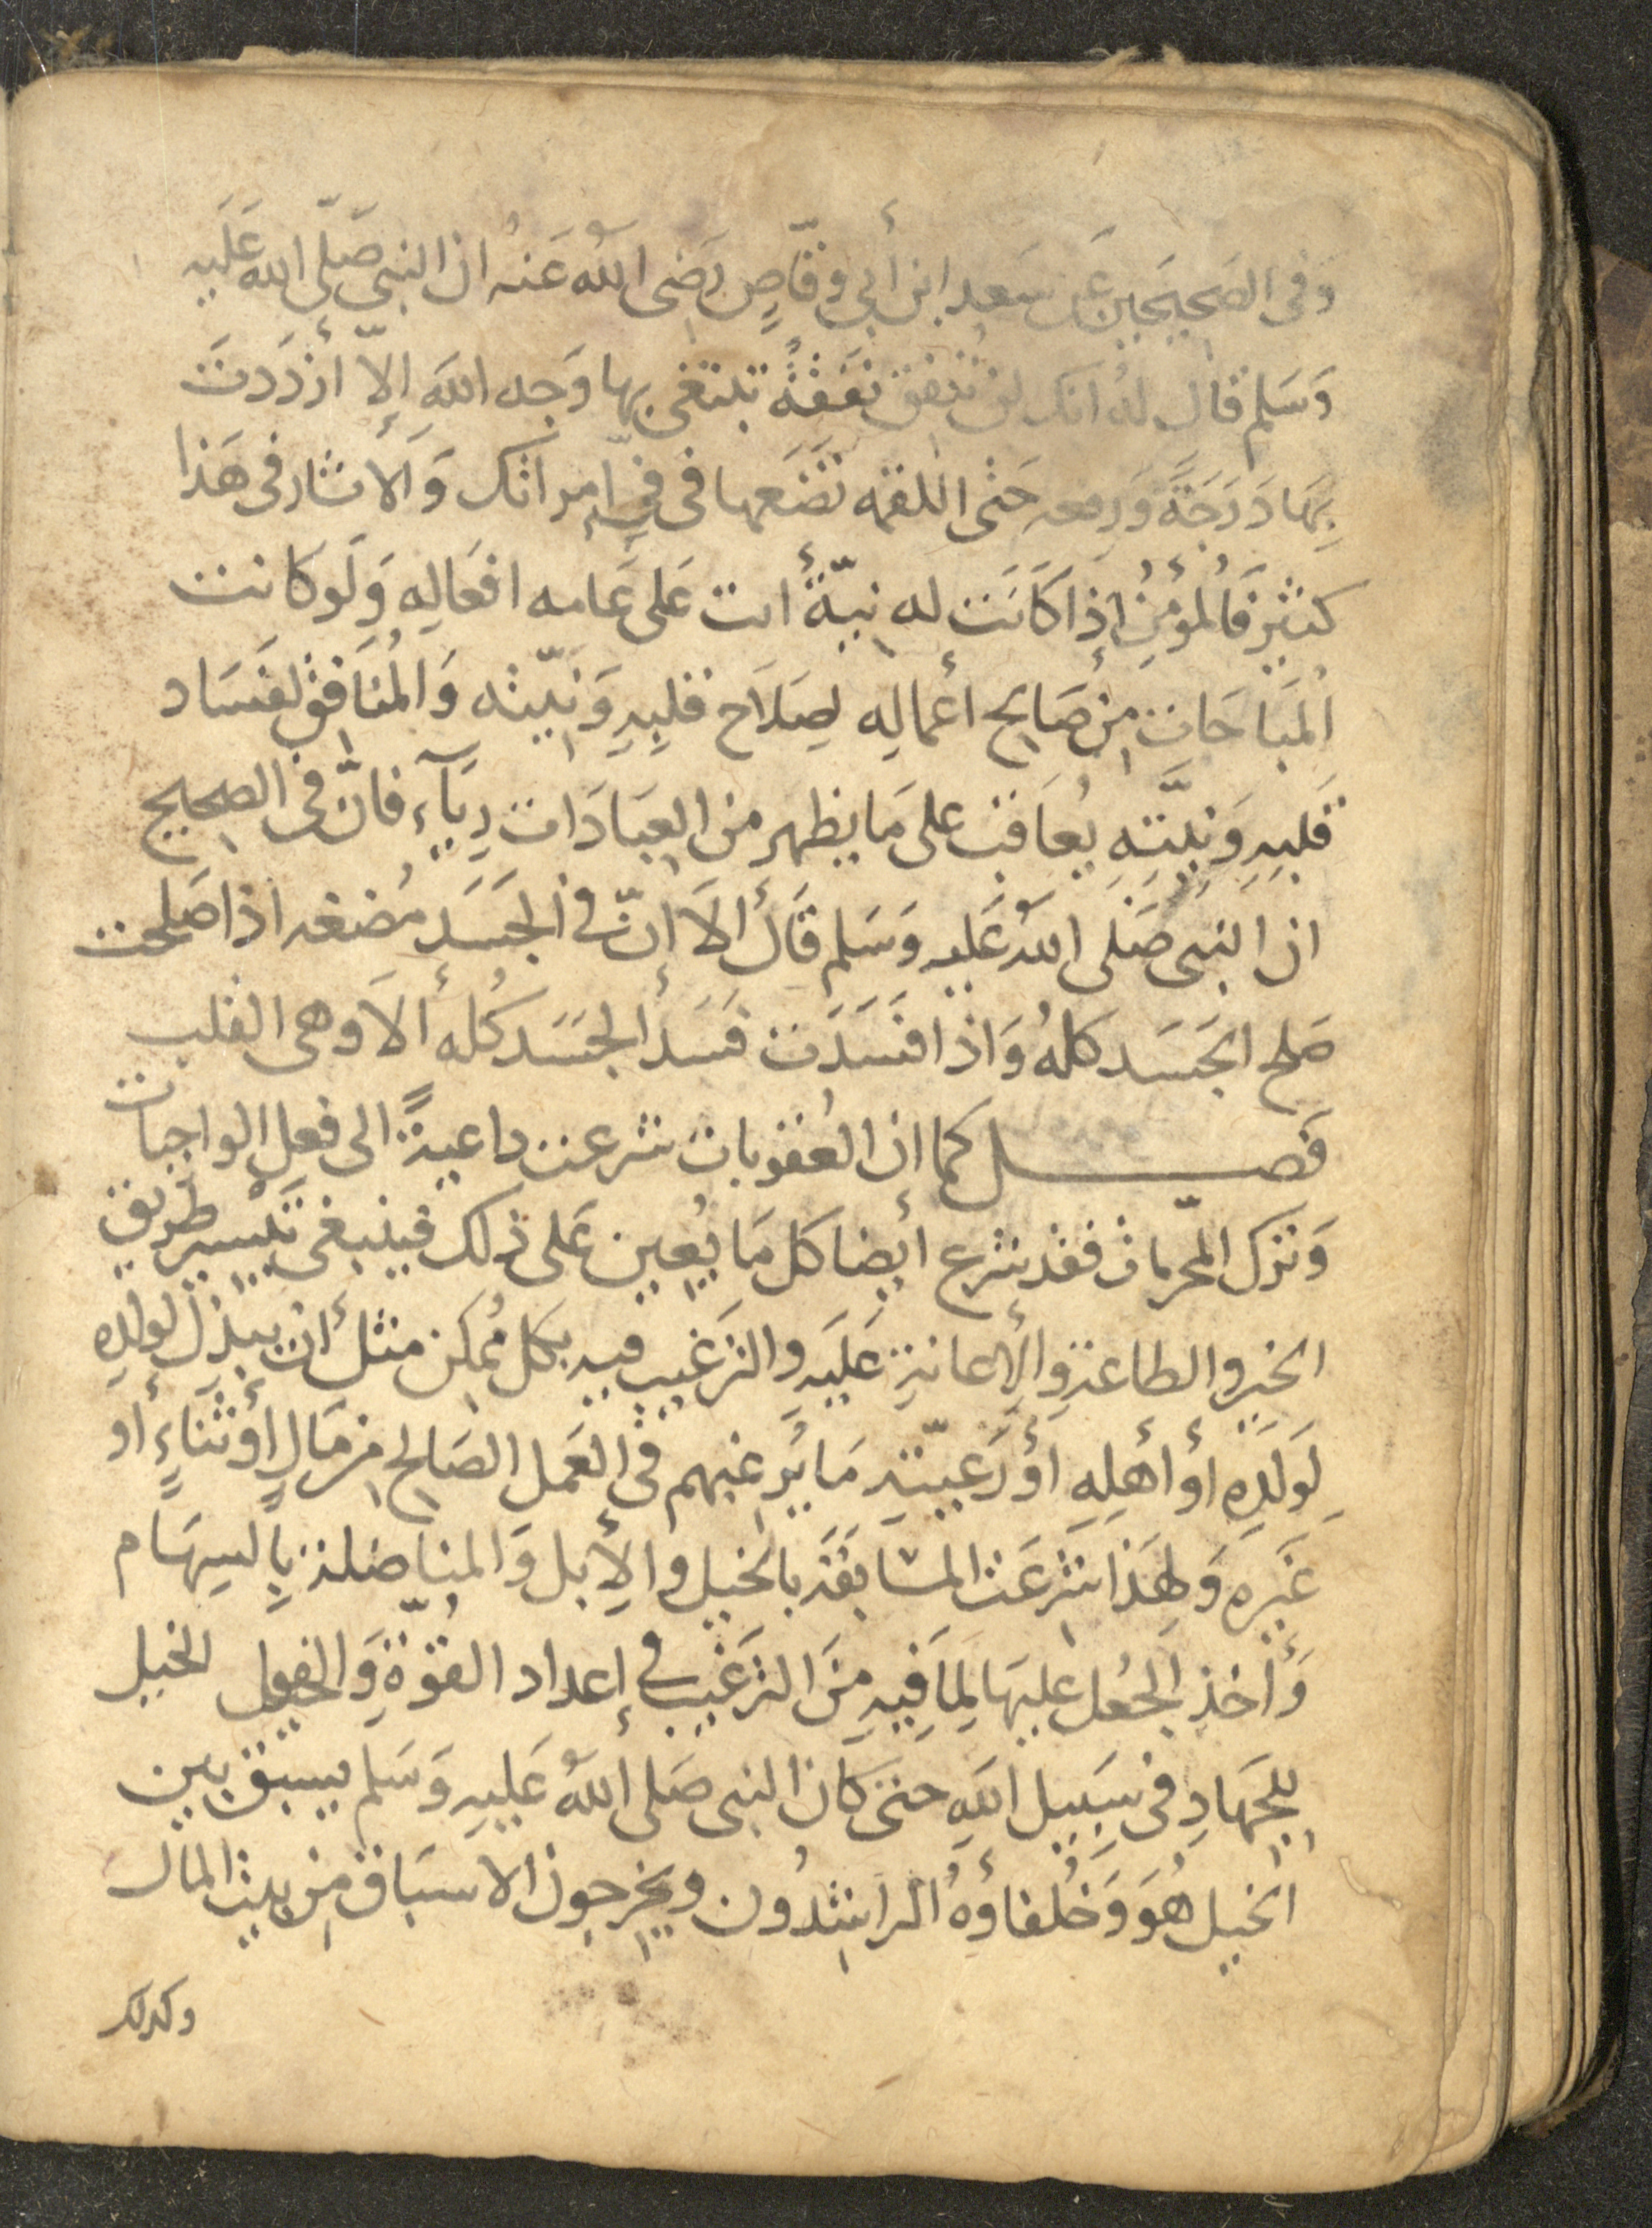 وَفى الصَحيحَين عَن سَعد ابن أبي وقّاصٍ رَضى اللهُ عَنه ان النبى صَلّى الله عَلَيه
وَسَلم قال لهُ انك لن تنفق نَفَقةً تبتغى بها وَجه اللهِ إلاّ أزدَدتَ
بِهَا دَرَجَةً وَرِفعه حَتى اللقمه تضَعها فى فِيّ امراتك وَالأثار فى هَذا
كثير فَالمؤمِنُ إذا كَانَت له نيّةٌ أتت عَلى عَامه افعَالِهِ وَلَو كانت
المُبَاحَات مِن صَالح أعمالِه لِصَلَاح قلبِهِ وَنيّته وَالمُنَافِق لفسَاد
قَلبِهِ وَنيَّتِهِ يُعَاقب على مَا يظهر من العِبَادَات رِيَآء فانّ فى الصحيح
ان النبى صَلى اللهُ عَليه وَسَلم قَال أَلاَ اِنّ في الجَسَدِ مُضغه اذا صَلحت
صَلح الجَسَد كلهُ وَاذا فسَدَت فسَد ألجَسَد كُله ألاَ وهى القلب
فَصـــل كما ان العُقوبات شرعت داعيةً الى فعل الواجبات
وَترك المحرّمات فقد شرع أيضا كل مَا يُعِين عَلى ذلك فينبغى تَيْسير طَريق
الخير والطاعة والإعانة عَليَهِ والترَغيب فيه بكل مُمكن مثل أن يبذل لولدِه
لِوَلَدِهِ أو أهلِهِ أوْ رَعيّتهِ مَا يُرغبهم فى العَمل الصَالح من مَالٍ أوْ ثنَاءٍ أو
غَيرِه وَلِهَذا شرعَت المسَابقَة بالخيل والإبل وَالمناضلة بِالسِهَام
وَأخذِ الجُعل عليهَا لِمَا فِيهِ مِنَ الترَغيب في إعداد القوّة وَ الخيل
لِلجِهَادِ فى سَبيل اللهِ حتىَ كان النبى صَلى أللهُ عَليهِ وَسَلم يسبق بين
الخيل هُوَ وَخُلفاؤهُ الرَاشدُون ويخرِجون الاسبَاق مِن بيت المال
وكذلك